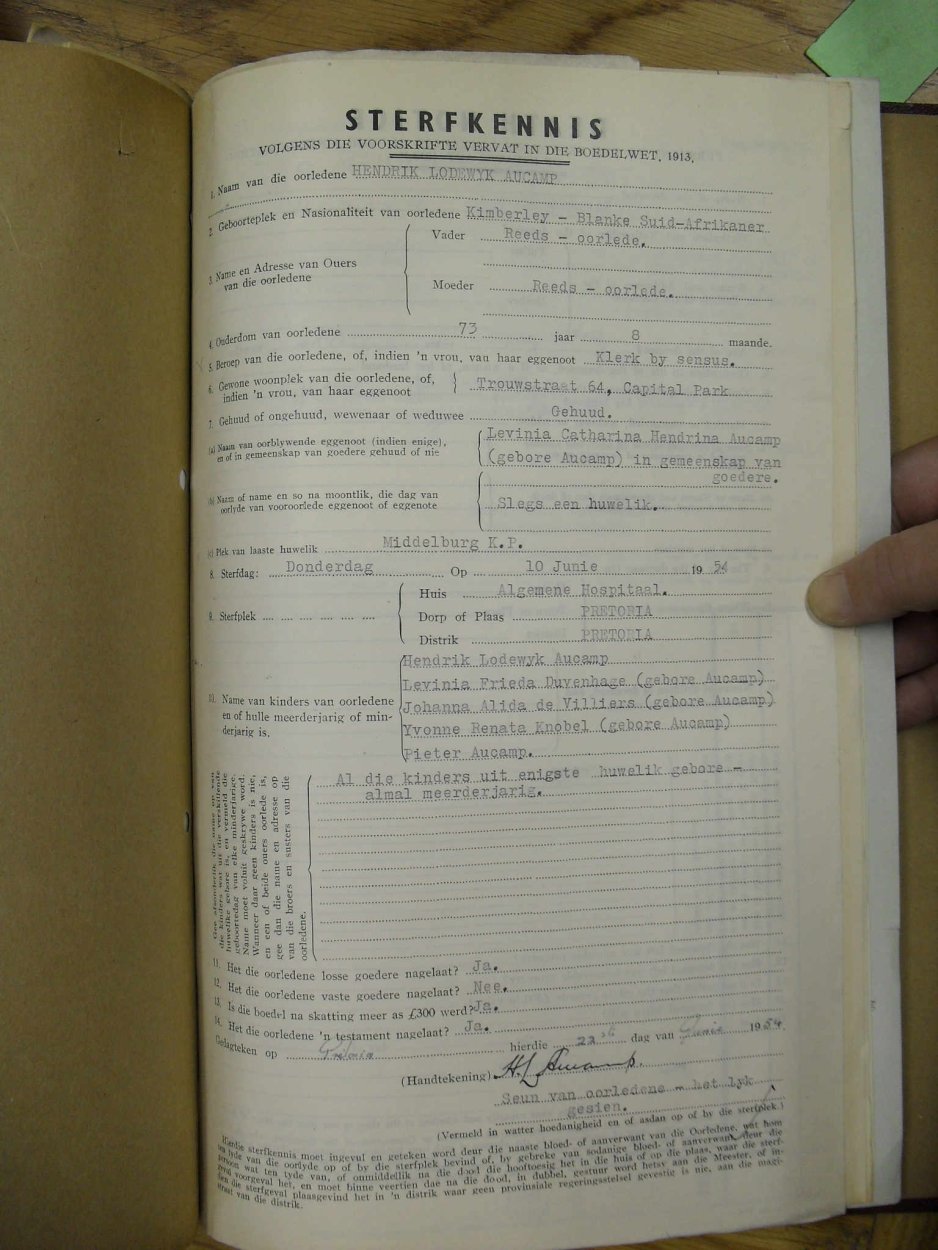 STERFKENNIS
VOLGENS DIE VOORSKRIFTE VERVAT IN DIE BOEDELWET, 1913.
1. Naam van die oorledene HENDRIK LODEWYK AUCAMP
2. Geboorteplek en Nasionaliteit van oorledene Kimberley - Blanke Suid-Afrikaner
3. Name en Adresse van Ouers van die oorledene
Vader Reeds - oorlede.
Moeder Reeds - oorlede.
4. Ouderdom van oorledene 73 jaar 8 maande.
5. Beroep van die oorledene, of, indien 'n vrou, van haar eggenoot Klerk by sensus.
6. Gewone woonplek van die oorledene, of,
indien 'n vrou, van haar eggenoot } Trouwstraat 64, Capital Park
7. Gehuud of ongehuud, wewenaar of weduwee Gehuud.
(a) Naam van oorblywende eggenoot (indien enige),
en of in gemeenskap van goedere gehuud of nie
Levinia Catharina Hendrina Aucamp
(gebore Aucamp) in gemeenskap van
goedere.
(b) Naam of name en so na moontlik, die dag van
oorlyde van vooroorlede eggenoot of eggenote
Slegs een huwelik.
(c) Plek van laaste huwelik Middelburg K.P.
8. Sterfdag: Donderdag Op 10 Junie 19 54
9. Sterfplek
Huis Algemene Hospitaal.
Dorp of Plaas PRETORIA
Distrik PRETORIA
10. Name van kinders van oorledene
en of hulle meerderjarig of min-
derjarig is.
Hendrik Lodewyk Aucamp
Levinia Frieda Duvenhage (gebore Aucamp)
Johanna Alida de Villiers (gebore Aucamp)
Yvonne Renata Knobel (gebore Aucamp)
Pieter Aucamp.
Gee afsonderlik die name op van
die kinders wat uit die verskillende
huwelike gebore is, en vermeld die
geboortedag van elke minderjarige.
Name moet voluit geskrywe word.
Wanneer daar geen kinders is nie,
en een of beide ouers oorlede is,
gee dan die name en adresse op
van die broers en susters van die
oorledene.
Al die kinders uit enigste huwelik gebore -
almal meerderjarig.
11. Het die oorledene losse goedere nagelaat? Ja.
12. Het die oorledene vaste goedere nagelaat? Nee.
13. Is die boedel na skatting meer as £300 werd? Ja.
14. Het die oorledene 'n testament nagelaat? Ja.
Gelagteken op Pretoria hierdie 22 dag van Junie 1954
(Handtekening) H L Aucamp.
Seun van oorledene - het lyk
gesien.
(Vermeld in watter hoedanigheid en of asdan op of by die sterfplek.)
Hierdie sterfkennis moet ingevul en geteken word deur die naaste bloed- of aanverwant van die Oorledene, wat hom
ten tyde van die oorlyde op of by die sterfplek bevind of, by gebreke van sodanige bloed- of aanverwant, deur die
persoon wat ten tyde van, of onmiddellik na die dood die hooftoesig het in die huis of op die plaas, waar die sterf-
geval voorgeval het, en moet binne veertien dae na die dood, in dubbel, gestuur word hetsy aan die Meester, of in-
dien die sterfgeval plaasgevind het in 'n distrik waar geen provinsiale regeringsstelsel gevestig is nie, aan die magi-
straat van die distrik.